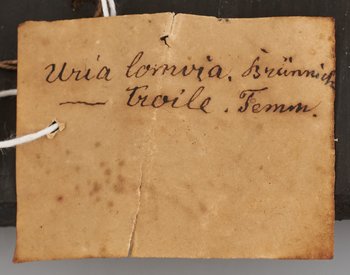 Uria lomvia. Brünnich
— troile. Temm.